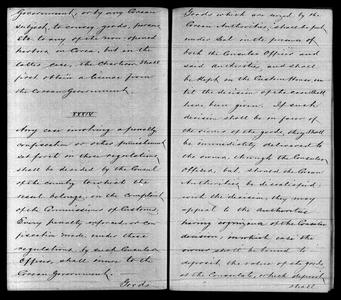 Government, or by any Corean
subject, to convey goods, persons
etc to any of the non opened
harbors in Corea, but in the
latter case, the Charterer shall
first obtain a license from
the Corean Government.
XXXIV
Any case involving a penalty
confiscation or other punishment
set forth in these regulations
shall be decided by the Consul
of the country to which the
vessel belongs, on the complaint
of the Commissioners of Customs,
Every penalty imposed or con
fiscation made, under these
regulations, by such Consular
Officer, shall inure to the
Corean Government.
Goods
Goods which are seized by the
Corean Authorities, shall be put
under Seal in the presence of
both the Consular Officer and
said Authorities, and shall
be kept in the Custom House, un
til the decision of the case shall
have been given. If such
decision shall be in favor of
the owner of the goods, they shall
be immediately delivered to
the owner, through the Consular
Officer, but should the Corean
Authorities, be dissatisfied
with the decision, they may
appeal to the Authorities
having cognizance of the Consular
decision, in which case the
owner shall be to
deposit the value of the goods
at the Consulate, which deposit
shall